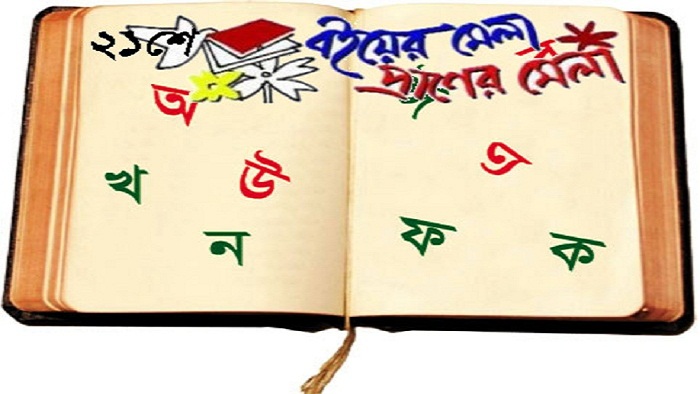 ২১শে বইয়ের মেলা
প্রাণের মেলা
অ
এ
খ উ
ন ফ ক